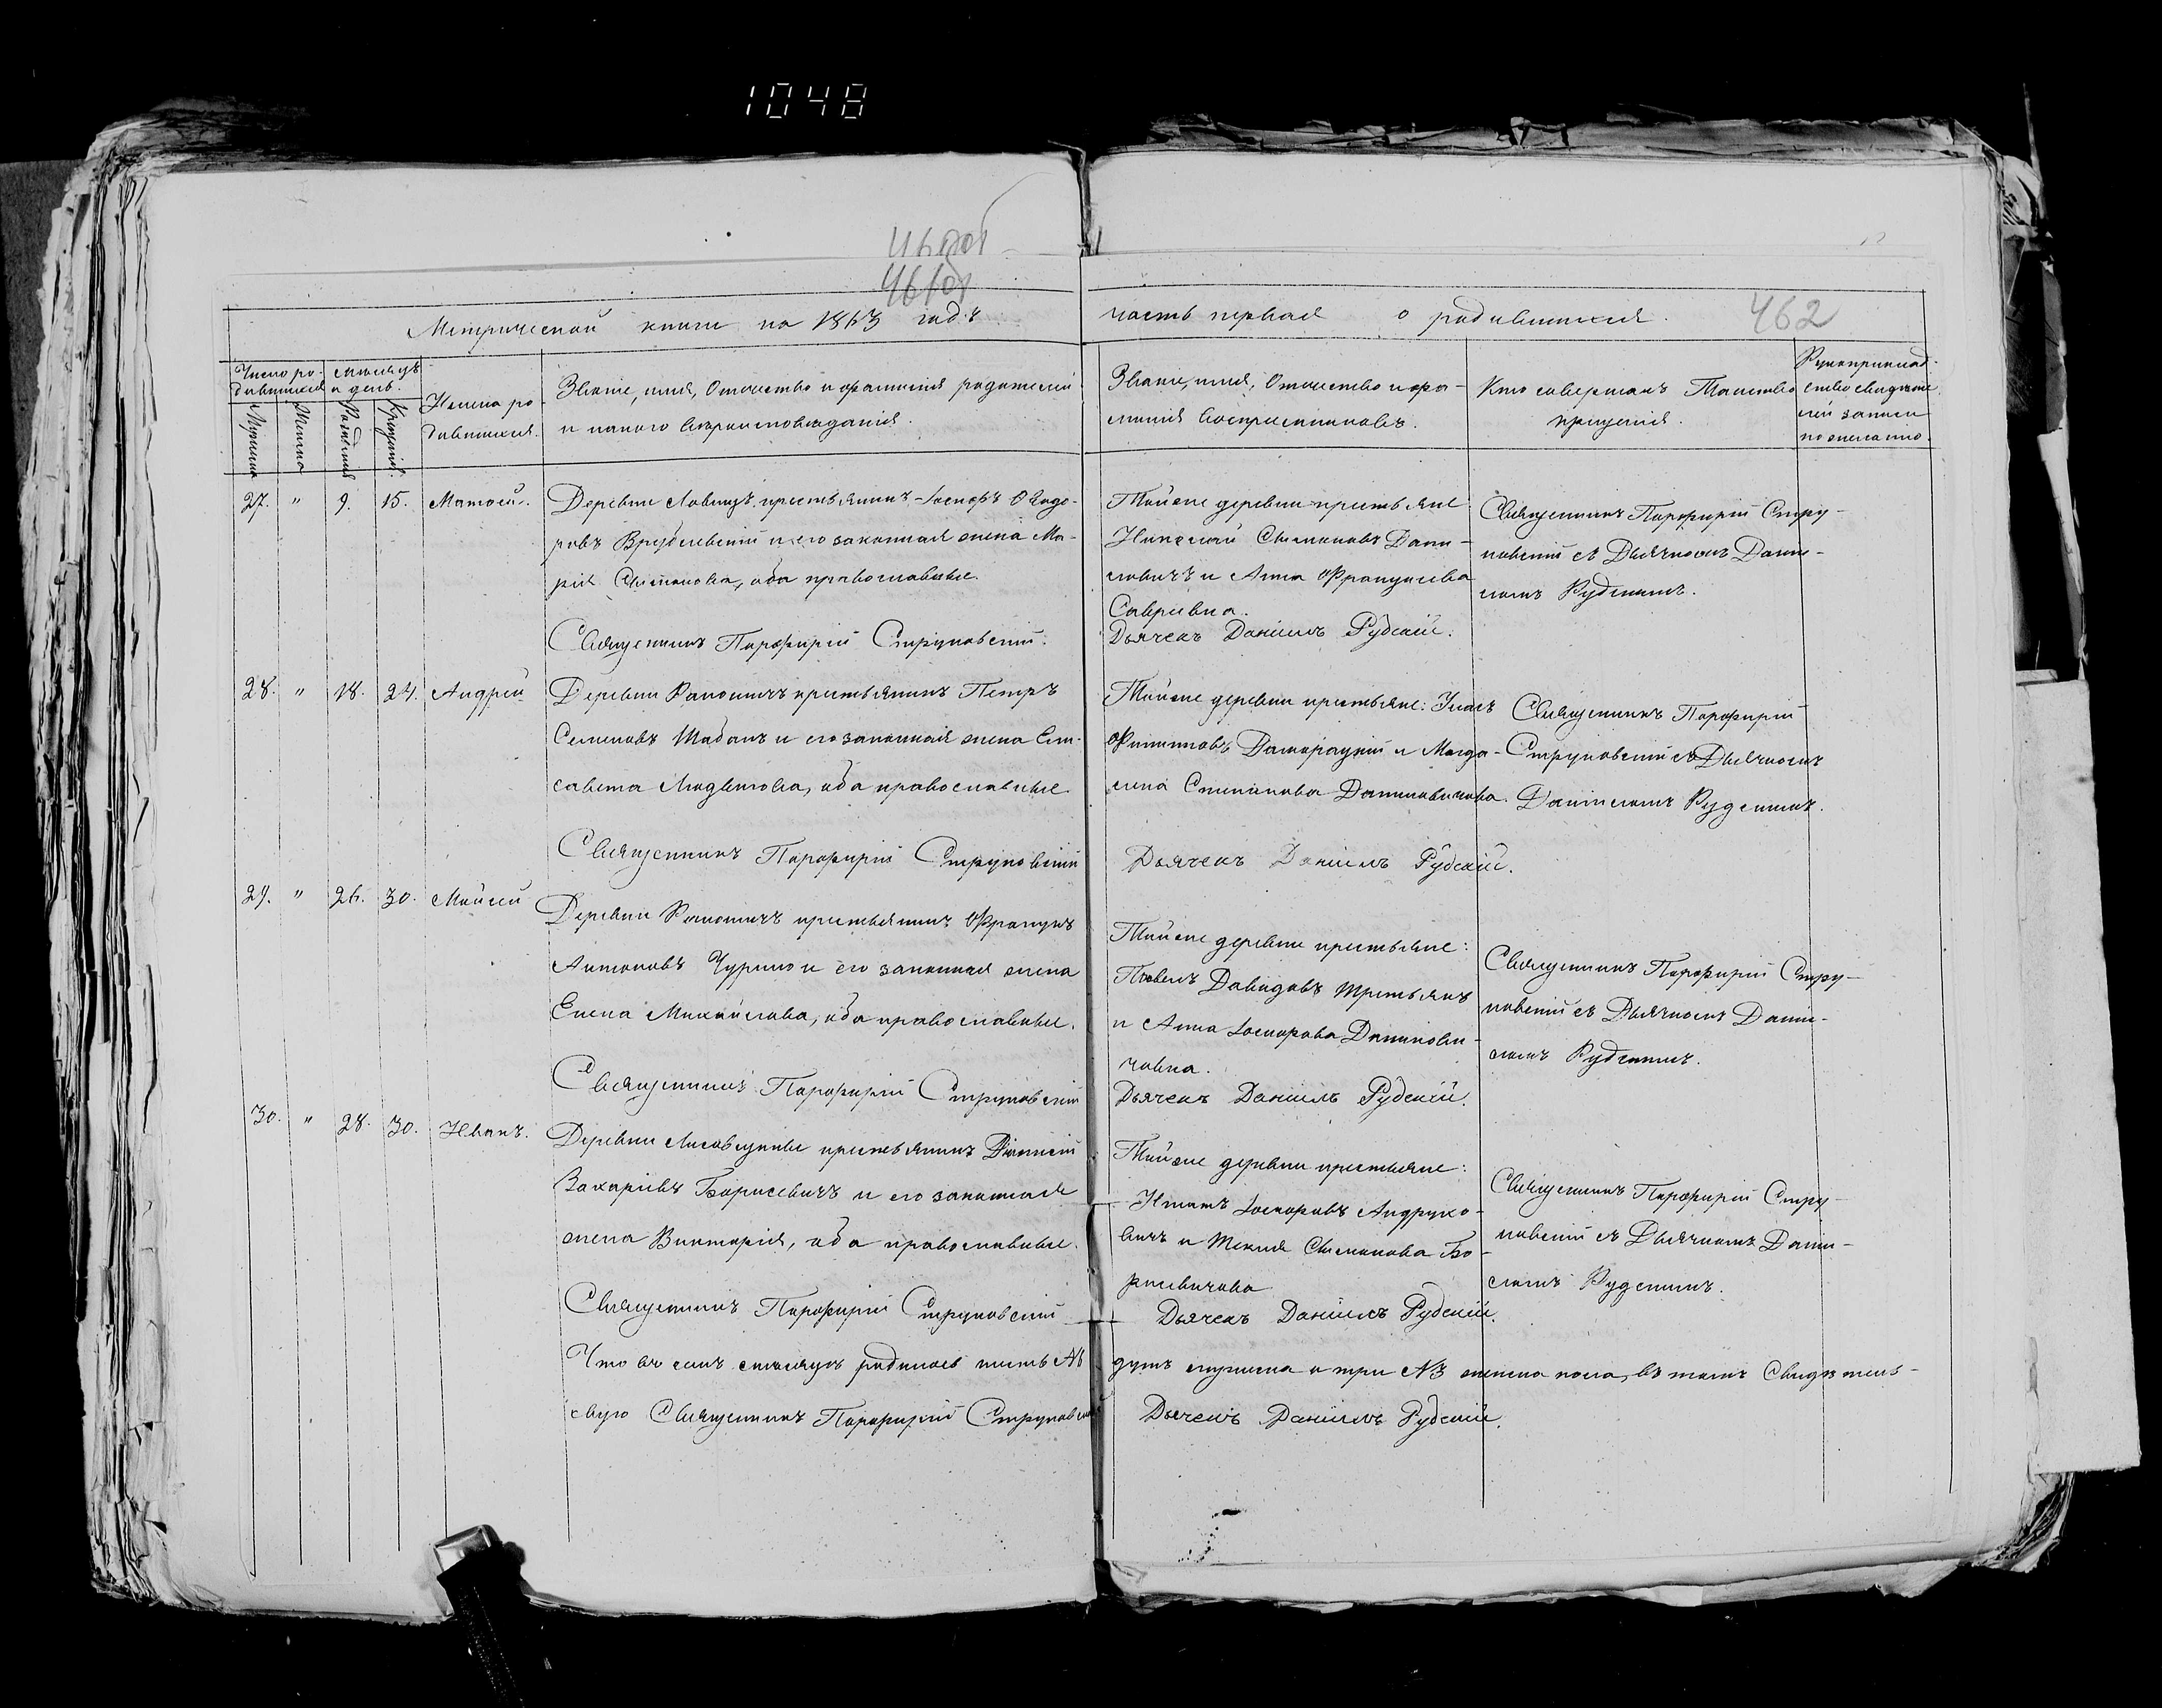 1048
461об
461об
462
Метрической книги на 1863 годъ
часть первая о родившихся.
Число ро-
дившихся
Мѣсяцъ
и день.
Мужска
Женска
Рожденія
Крещенія.
Имена ро-
дившихся.
Званіе, имя, Отчество и фамилія родителей
и какого вѣроисповѣданія.
Званіе, имя, Отчество и фа-
милія воспріемниковъ.
Кто совершалъ Таинство
крещенія.
Рукоприклад-
ство свидѣте
лей записи
по желанію.
27. " 9. 15. Матѳей.
Деревни крестьянинъ Іосифъ Ѳеодо-
ровъ Врублевскій и его законная жена Ма-
рія Симонова, оба православные.
Священникъ Порфирій Струковскій.
Тойже деревни крестьяне
Николай Симоновъ Дани-
ловичъ и Анна Францушева
Савривна.
Дьячекъ Даніилъ Рубскій.
Священникъ Порфирій Стру-
ковскій съ Дьячкомъ Дани-
ломъ Рубскимъ.
28. " 18. 24. Андрей
Деревни крестьянинъ Петръ
Семеновъ Шабанъ и его законная жена Ели-
савета Людвигова, оба православные
Священникъ Порфирій Струковскій
Тойже деревни крестьяне:
Филиповъ и Магда-
лена Степанова Даниловичова.
Дьячекъ Даніилъ Рубскій.
Священникъ Порфирій
Струковскій съ Дьячкомъ
Даніиломъ Рудскимъ.
29. " 26. 30. Мойсей
Деревни крестьянинъ Францъ
Антоновъ Чурило и его законная жена
Елена Михайлова, оба православные.
Священникъ Порфирій Струковскій
Тойже деревни крестьяне:
Павелъ Давидовъ Третьякъ
и Анна Іосифова Данилови-
човна.
Дьячекъ Даніилъ Рубскій.
Священникъ Порфирій Стру-
ковскій съ Дьячкомъ Дани-
ломъ Рубскимъ.
30. " 28. 30. Иванъ.
Деревни крестьянинъ Діонисій
Захаріевъ Борисевичъ и его законная
жена Викторія, оба православные.
Священникъ Порфирій Струковскій
Тойже деревни крестьяне:
Игнатъ Іосифовъ Андрухо-
вичъ и Текля Симонова Бо-
рисевичова
Дьячекъ Даніилъ Рубскій.
Священникъ Порфирій Стру-
ковскій съ Дьячкомъ Дани-
ломъ Рудскимъ.
Что въ семъ мѣсяцѣ родилось шесть №
душъ мужеска и три №3 женска пола, въ томъ Свидѣтель-
свую Священникъ Порфирій Струковскій
Дьячекъ Даніилъ Рубскій.